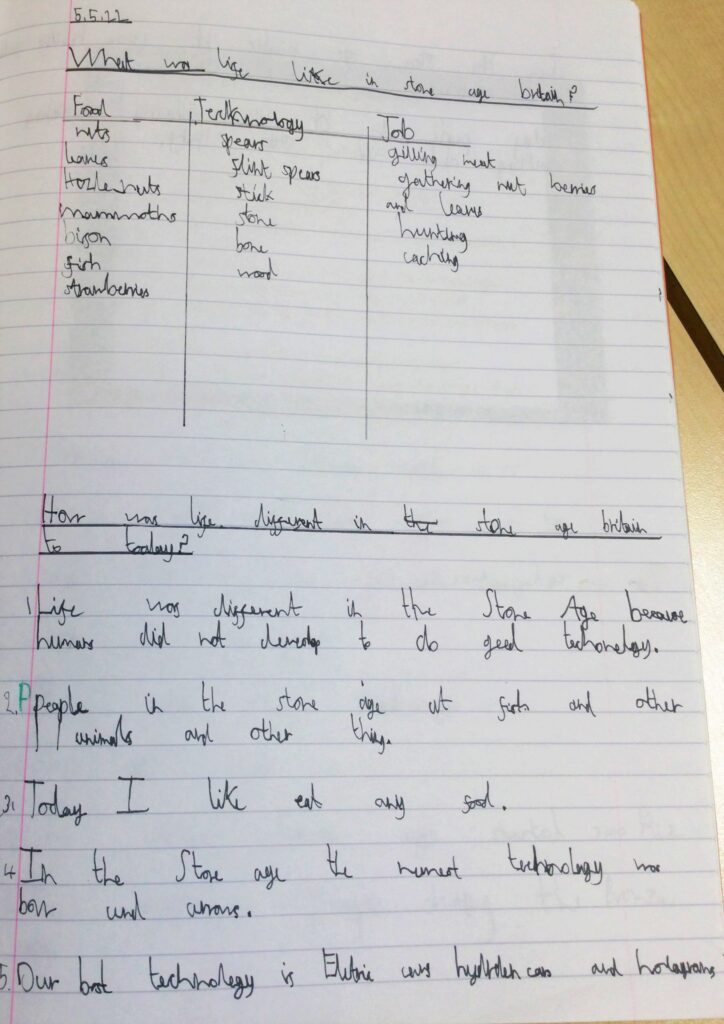 5.5.22
What was life like in stone age britain?
Food Tecknology Job
nuts spears gilling meat
leaves flint spears gathering nut berries
Hozle nuts stick and leaves
mammoths stone hunting
bison bone caching
fish wood
strawberries
How was life different in the stone age britain
to today?
1. Life was different in the Stone Age because
humans did not develop to do good techonology.
2. People in the stone age at fish and other
animals and other thing.
3. Today I like eat any food.
4. In the Stone age the newest technology was
bow and arrows.
5. Our best technology is Eletric cars hydrden cars and holograms